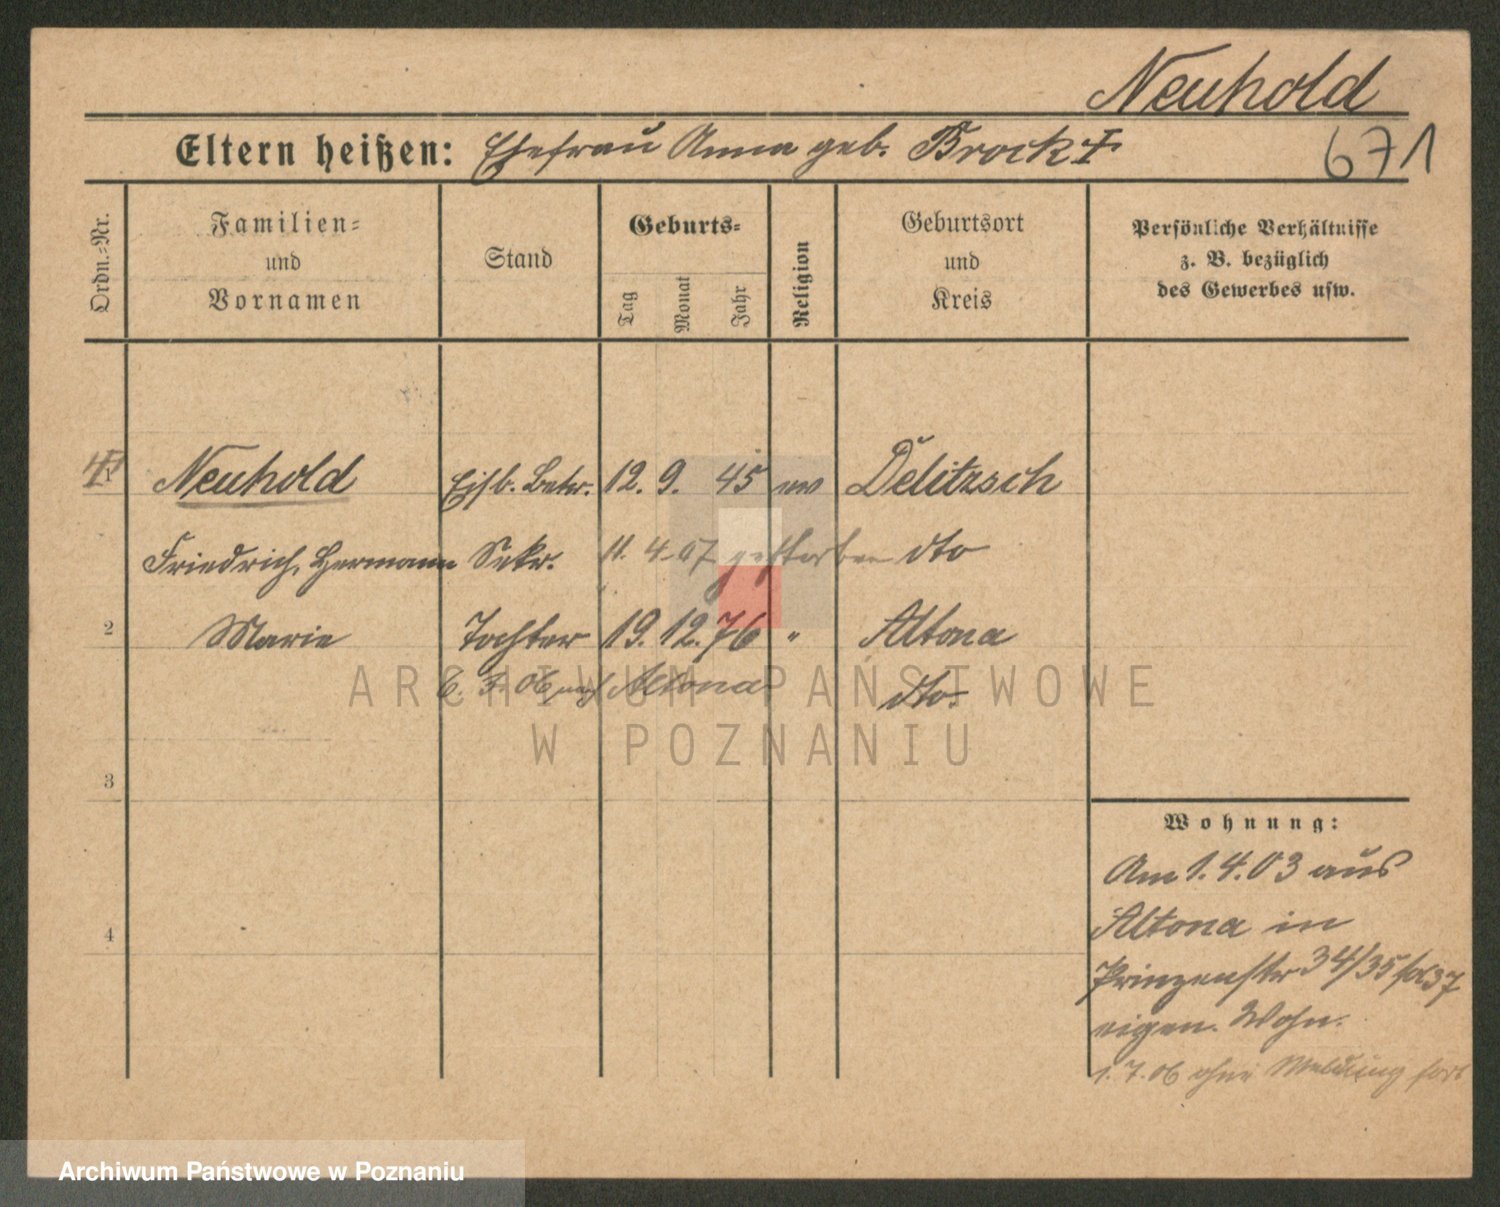 Neuhold
671
Eltern heißen: Ehefrau Anna geb. Brock †
Ordn.-Nr.
Familien-
und
Vornamen
Stand
Geburts-
Tag
Monat
Jahr
Religion
Geburtsort
und
Kreis
Persönliche Verhältnisse
z. B. bezüglich
des Gewerbes usw.
1 Neuhold Eisb. Betr. 12. 9. 45 ev Delitzsch
Friedrich, Hermann Sekr. 11. 4. 07 gestorben dto
2 Marie Tochter 19. 12. 76 " Altona
6. 7. 06 nach Altona dto.
ARCHIWUM PAŃSTWOWE
W POZNANIU
3
4
Wohnung:
Am 1. 4. 03 aus
Altona in
Prinzenstr 34/35
eigen. Wohn.
1. 7. 06 ohne Meldung fort
Archiwum Państwowe w Poznaniu